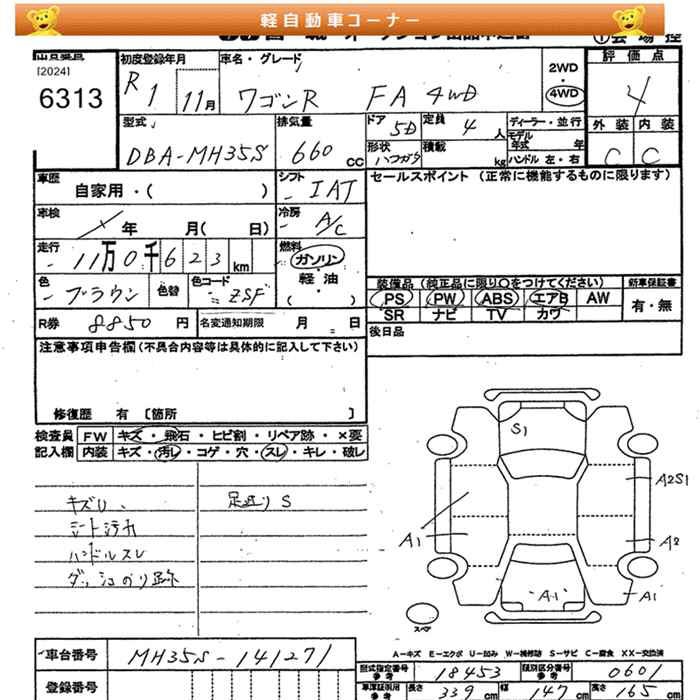 軽自動車コーナー
出品番号
[2024]
6313
初度登録年月
R1 11月
車名・グレード
ワゴンR FA 4WD
2WD
・
4WD
評価点
4
外装 内装
C C
型式
DBA-MH35S
排気量
660 cc
ドア 5D
定員 4人
形状 ハコガタ
積載 kg
ディーラー・並行
モデル年式 年
ハンドル 左・右
車歴
自家用・( )
シフト
IAT
セールスポイント (正常に機能するものに限ります)
車検
年 月( 日)
冷房
A/C
走行
11万0千623km
燃料
ガソリン
軽・油
( )
色
ブラウン
色替
色コード
ZSF
装備品 (純正品に限り○をつけてください)
PS PW ABS エアB AW
SR ナビ TV カワ
新車保証書
有・無
R券 8850 円
名変通知期限 月 日
後日品
注意事項申告欄(不具合内容等は具体的に記入して下さい)
修復歴 有 〔箇所 〕
検査員記入欄
FW キズ・飛石・ヒビ割・リペア跡・×要
内装 キズ・汚レ・コゲ・穴・スレ・キレ・破レ
キズU、
シート汚れ
ハンドルスレ
ダッシュのり跡
足廻り S
S1
A2S1
A1
A2
A1
A1
スペア
A-キズ E-エクボ U-凹み W-補修跡 S-サビ C-腐食 XX-交換済
車台番号 MH35S-141271
登録番号
型式指定番号 参考 18453
類別区分番号 参考 0601
車庫証明用 参考
長さ 339 cm
幅 147 cm
高さ 165 cm